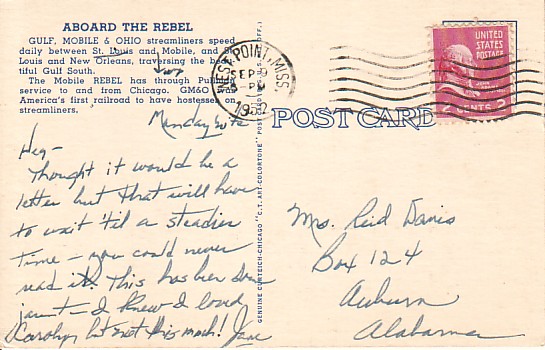 ABOARD THE REBEL
GULF, MOBILE & OHIO streamliners speed
daily between St. Louis and Mobile, and St.
Louis and New Orleans, traversing the beau-
tiful Gulf South.
The Mobile REBEL has through Pullman
service to and from Chicago. GM&O was
America's first railroad to have hostesses on
streamliners.
WEST POINT, MISS.
SEP
PM
1952
UNITED
STATES
POSTAGE
CENTS 2
POST CARD
GENUINE CURTEICH-CHICAGO "C.T. ART-COLORTONE" POST CARD
Monday nite
Hey-
Thought it would be a
letter but that will have
to wait 'til a steadier
time - you could never
read it. This has been
jaunt - I knew I loved
Carolyn but not this much! Jane
Mrs. Reid Davis
Box 124
Auburn
Alabama